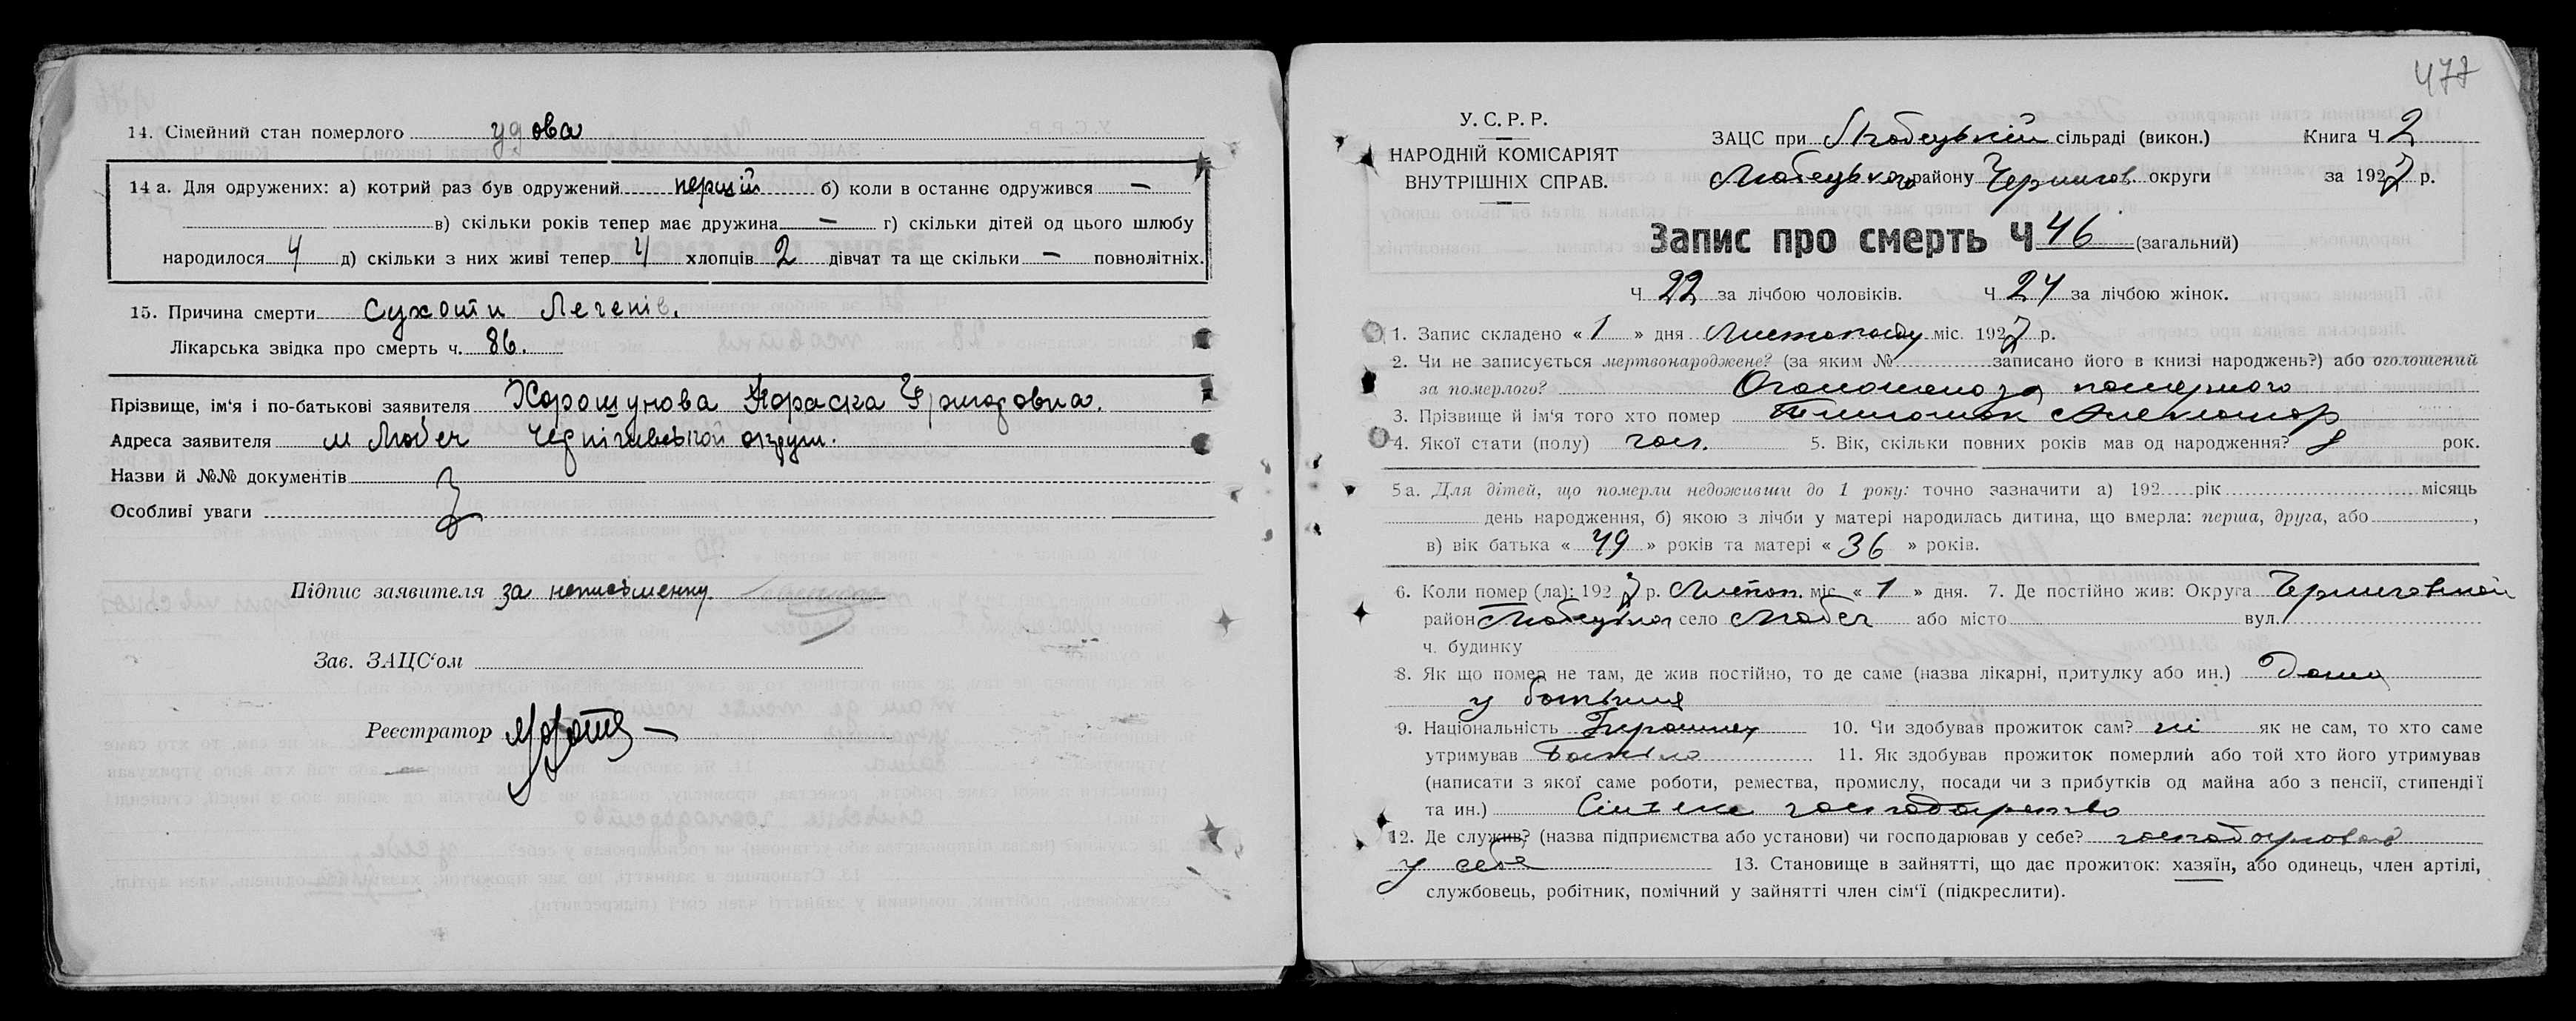 14. Сімейний стан померлого удова
14 а. Для одружених: а) котрий раз був одружений перший б) коли в останнє одружився —
в) скільки років тепер має дружина — г) скільки дітей од цього шлюбу
народилося 4 д) скільки з них живі тепер 4 хлопців 2 дівчат та ще скільки — повнолітніх.
15. Причина смерти Сухоти Легенів.
Лікарська звідка про смерть ч. 86.
Прізвище, ім'я і по-батькові заявителя Хорошунова Параска
Адреса заявителя м Любеч Чернігівської округи.
Назви й №№ документів
Особливі уваги
Підпис заявителя за неписьменну
Зав. ЗАЦС'ом
Реєстратор
477
У. С. Р. Р.
НАРОДНІЙ КОМІСАРІЯТ
ВНУТРІШНІХ СПРАВ.
ЗАЦС при Любецькій сільраді (викон.) Книга Ч. 2
Любецького району Чернигов. округи за 1927 р.
Запис про смерть Ч 46 (загальний)
Ч 22 за лічбою чоловіків. Ч 24 за лічбою жінок.
1. Запис складено « 1 » дня Листопаду міс. 1927 р.
2. Чи не записується мертвонароджене? (за яким № записано його в книзі народжень?) або оголошений
за померлого? Оголошено за померлого
3. Прізвище й ім'я того хто помер
4. Якої стати (полу) чол. 5. Вік, скільки повних років мав од народження? рок.
5а. Для дітей, що померли недоживши до 1 року: точно зазначити а) 192 рік місяць
день народження, б) якою з лічби у матері народилась дитина, що вмерла: перша, друга, або ,
в) вік батька « 49 » років та матері « 36 » років.
6. Коли помер (ла): 1927 р. Листоп. міс. « 1 » дня. 7. Де постійно жив: Округа
район село Любеч або місто вул.
ч. будинку
8. Як що помер не там, де жив постійно, то де саме (назва лікарні, притулку або ин.) Дома
у
9. Національність 10. Чи здобував прожиток сам? ні як не сам, то хто саме
утримував Батько 11. Як здобував прожиток померлий або той хто його утримував
(написати з якої саме роботи, ремества, промислу, посади чи з прибутків од майна або з пенсії, стипендії
та ин.) Сільське господарство
12. Де служив? (назва підприємства або установи) чи господарював у себе? господарював
у себе 13. Становище в зайнятті, що дає прожиток: хазяїн, або одинець, член артілі,
службовець, робітник, помічний у зайнятті член сім'ї (підкреслити).